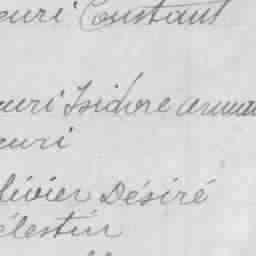 enri Constant
enri Isidore Arman
enri
livier Désiré
élestin